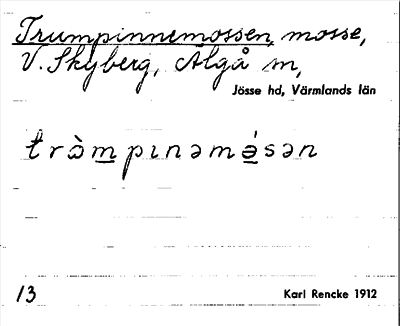 Trumpinnemossen, mosse,
V. Skyberg, Älgå sn,
Jösse hd, Värmlands län
tròm̲pɩnəmə̲́sən
13
Karl Rencke 1912